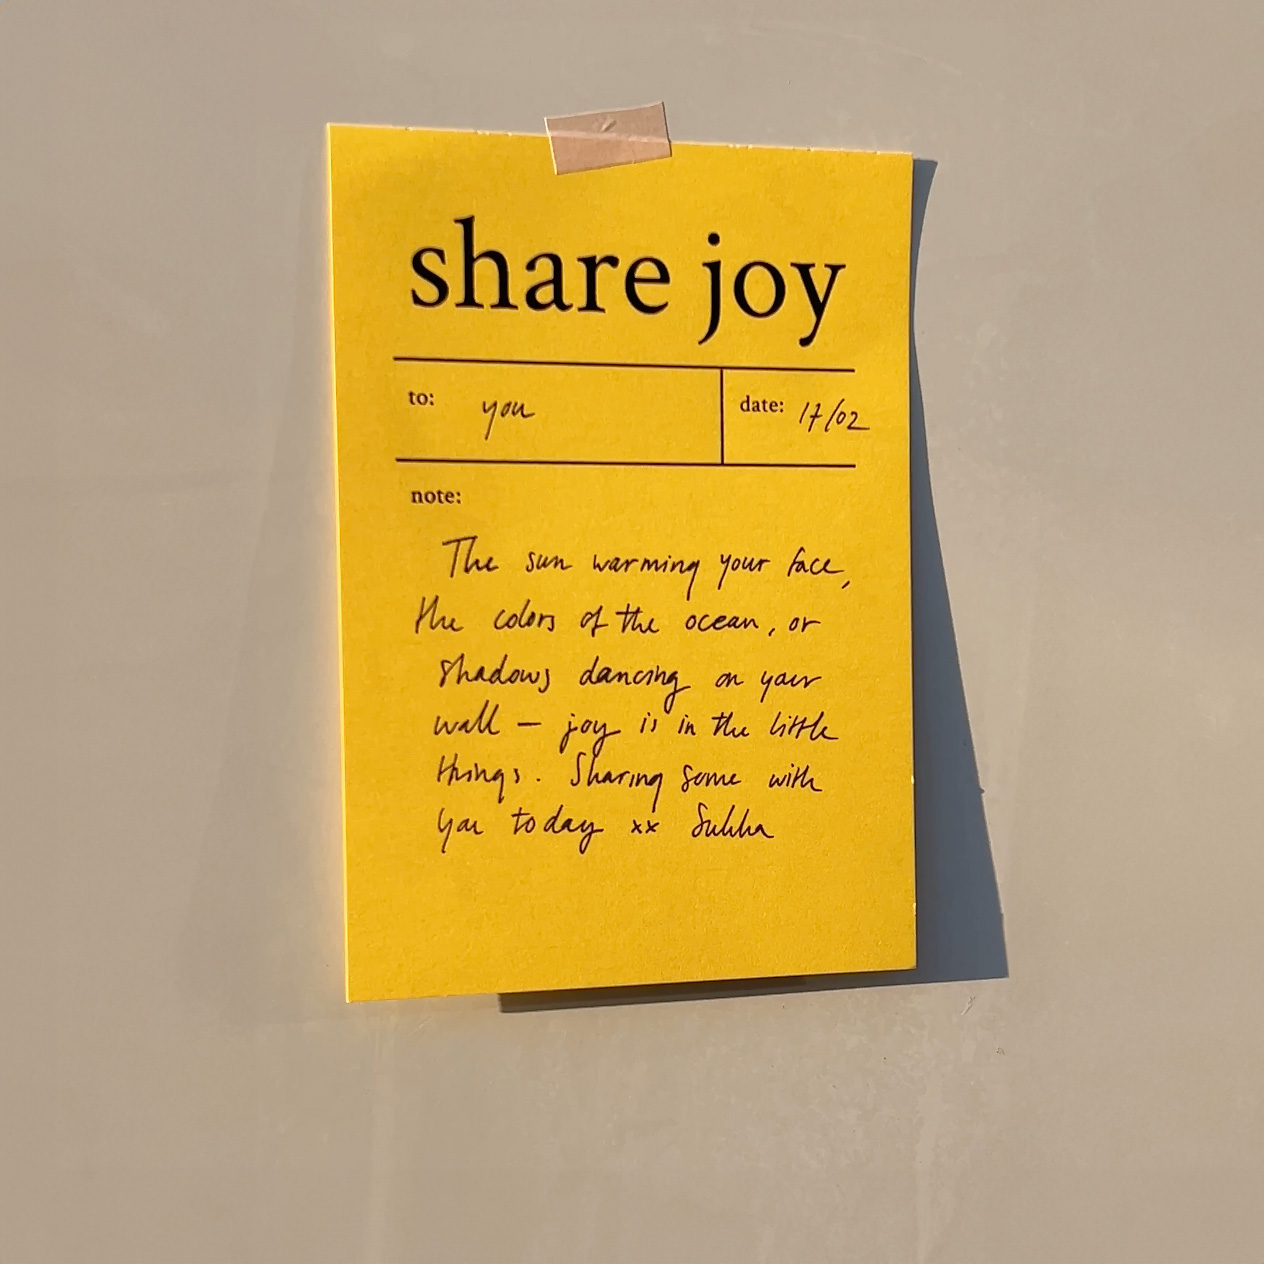 share joy
to: you
date: 17/02
note:
The sun warming your face,
the colors of the ocean, or
shadows dancing on your
wall – joy is in the little
things. Sharing some with
you today xx Sukha